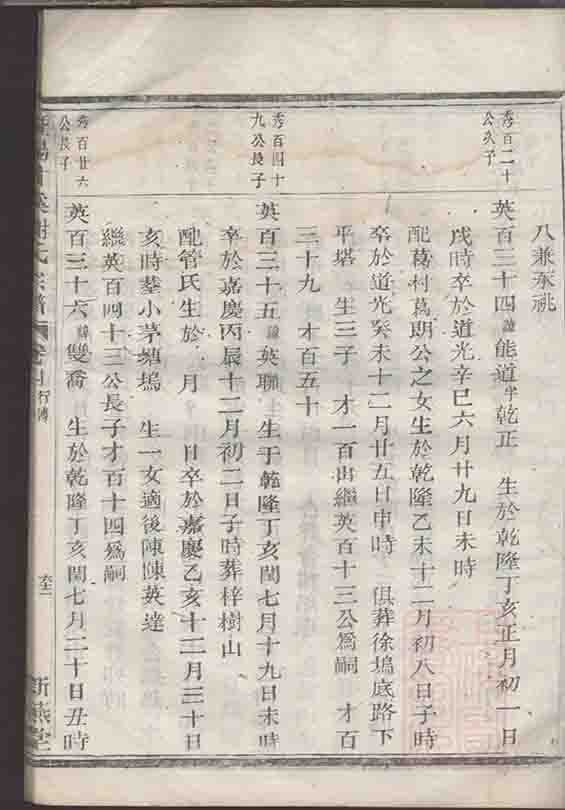 八兼東祧
秀百二十
公次子
英百三十四諱能道字乾正 生於乾隆丁亥正月初一日
戌時卒於道光辛巳六月廿九日未時
配葛村葛朗公之女生於乾隆乙未十二月初八日子時
卒於道光癸未十二月廿五日申時 俱葬徐塢底路下
平塔 生三子 才一百出繼英百十三公爲嗣 才百
三十九 才百五十
秀百四十
九公長子
英百三十五諱英聯 生于乾隆丁亥閏七月十九日未時
卒於嘉慶丙辰十二月初二日子時葬梓樹山
配管氏生於 月 日卒於嘉慶乙亥十二月三十日
亥時葬小茅塘塢 生一女適後陳陳英達
繼英百四十三公長子才百十四爲嗣
秀百廿六
公長子
英百三十六諱雙喬 生於乾隆丁亥閏七月二十日丑時
氏宗譜 行傳